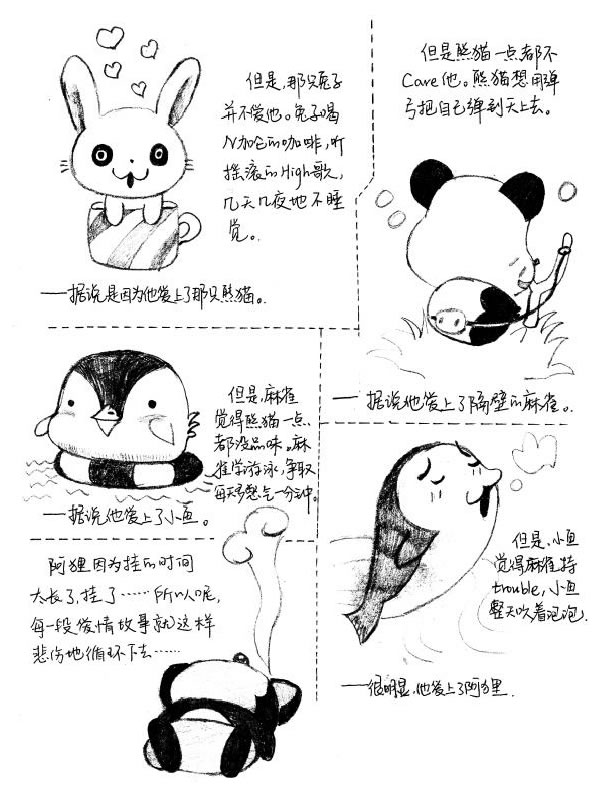 但是,那只兔子
并不爱他。兔子喝
N加仑的咖啡,听
摇滚的High歌,
几天几夜地不睡
觉。
——据说是因为他爱上了那只熊猫。
但是熊猫一点都不
Care他。熊猫想用弹
弓把自己弹到天上去。
——据说他爱上了隔壁的麻雀。
但是,麻雀
觉得熊猫一点
都没品味。麻
雀学游泳,争取
每天多憋气一分钟。
——据说他爱上了小鱼。
但是,小鱼
觉得麻雀特
trouble,小鱼
整天吹着泡泡
——很明显,他爱上了阿狸.
阿狸因为挂的时间
太长了,挂了……所以呢,
每一段爱情故事就这样
悲伤地循环下去……